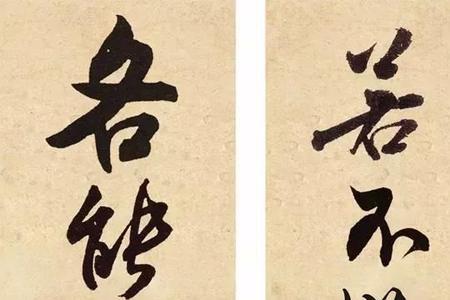 若不
各能